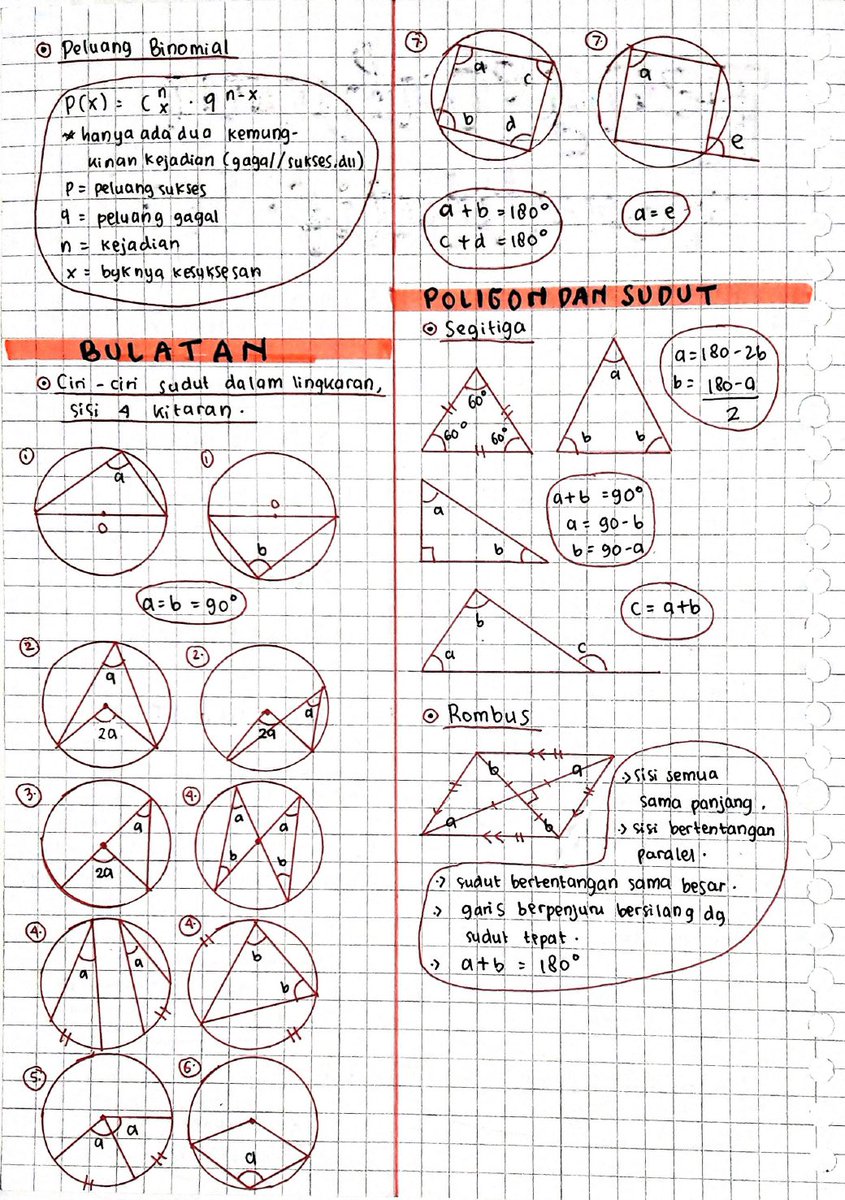 Peluang Binomial
P(x) = C n x . q n-x
* hanya ada dua kemung-
kinan kejadian (gagal//sukses.dll)
P = peluang sukses
q = peluang gagal
n = kejadian
x = byknya kesuksesan
BULATAN
Ciri - ciri sudut dalam lingkaran,
sisi 4 kitaran.
① ①
a
O
O
b
a = b = 90°
2 2.
a
2a
a
2a
3. 4.
a
2a
a a
b b
4. 4.
a a
b
b
5. 6.
a a
a
7. 7.
a
c
b
d
a
e
a + b = 180°
c + d = 180°
a = e
POLIGON DAN SUDUT
Segitiga
60°
60° 60°
a
b b
a = 180 - 2b
b = 180 - a
2
a
b
a + b = 90°
a = 90 - b
b = 90 - a
b
a
c
c = a + b
Rombus
b a
a b
→ sisi semua
sama panjang.
→ sisi bertentangan
paralel.
→ sudut bertentangan sama besar.
→ garis berpenjuru bersilang dg
sudut tepat.
→ a + b = 180°